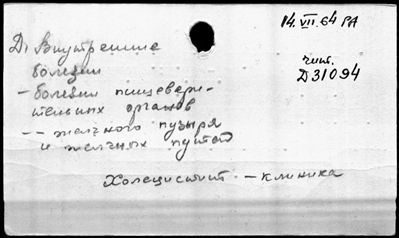 14.VII.64 РА
Д. Внутренние
болезни
чит.
Д31094
– болезни пищевари-
тельных органов
– – желчного пузыря
и желчных путей
Холецистит – клиника